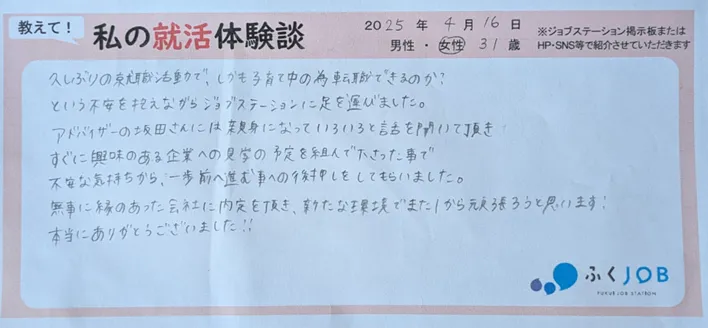 教えて！
私の就活体験談
2025年 4月 16日
男性・女性 31歳
※ジョブステーション掲示板または
HP・SNS等で紹介させていただきます
久しぶりの就職活動で、しかも子育て中の為転職できるのか？
という不安を抱えながらジョブステーションに足を運びました。
アドバイザーの坂田さんには親身になっていろいろと話を聞いて頂き
すぐに興味のある企業への見学の予定を組んで下さった事で
不安な気持ちから、一歩前へ進む事への後押しをしてもらいました。
無事に縁のあった会社に内定を頂き、新たな環境でまた1から頑張ろうと思います！
本当にありがとうございました!!
ふくJOB
FUKUI JOB STATION